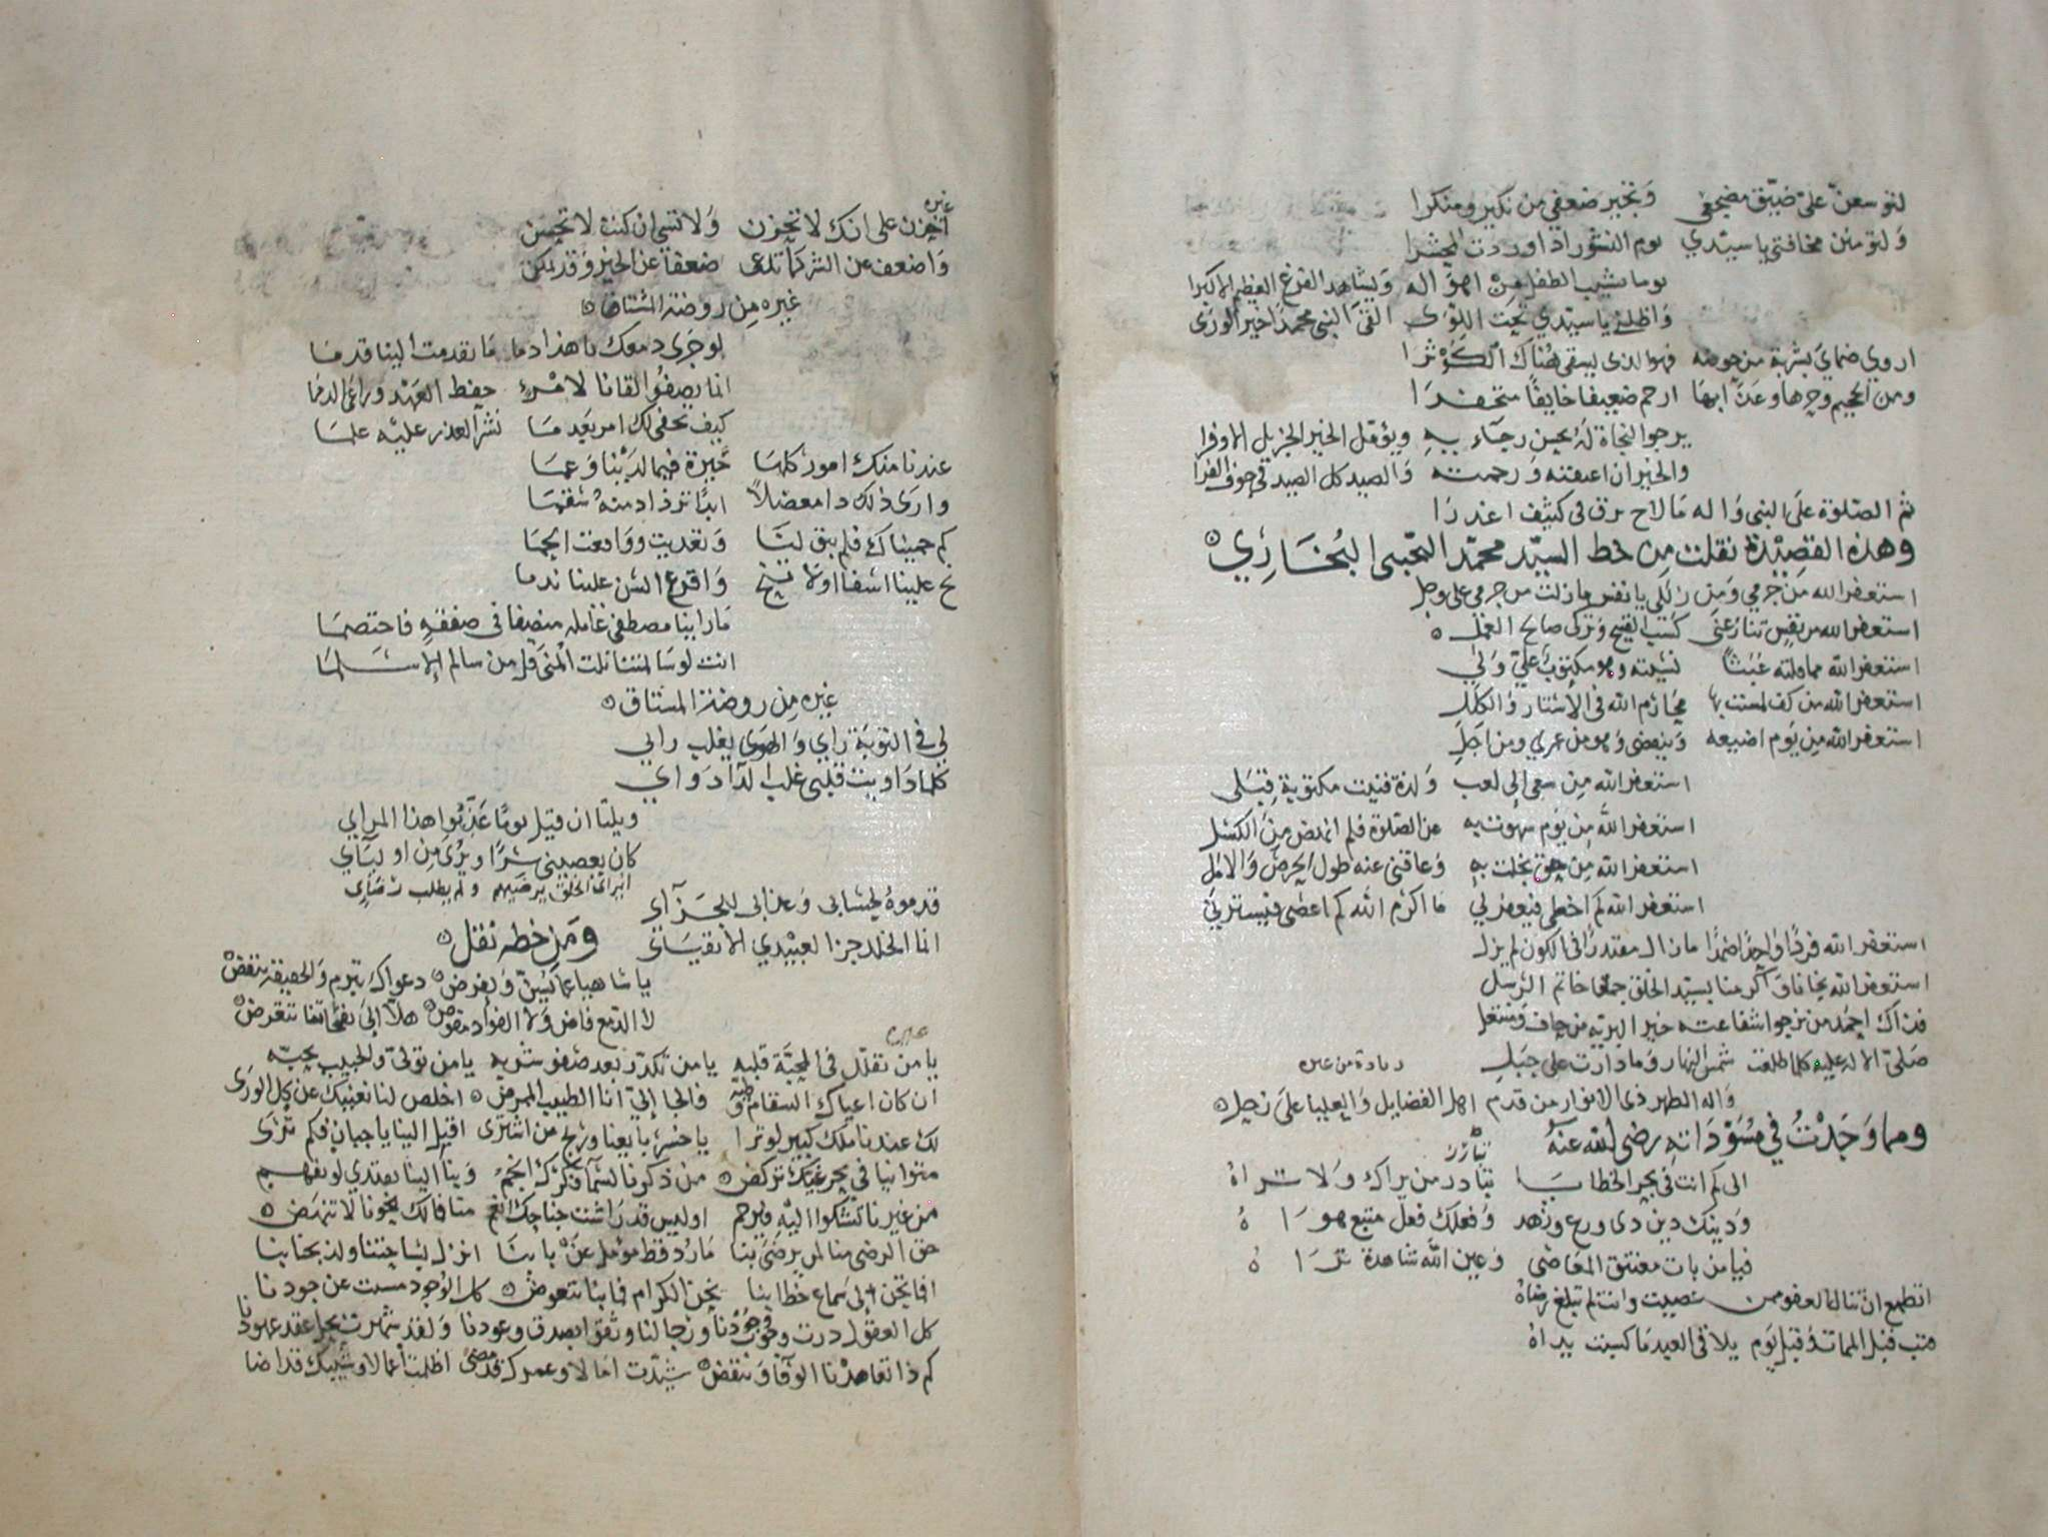 لتوسعن علي ضيق مضجعي وتجير ضعفي من نكير ومنكرا
ولتؤمنن مخافتي يا سيدي يوم النشور اذا وردت المحشرا
يوما يشيب الطفل من اهواله ويشاهد الفزع العظيم الاكبرا
واظلني يا سيدي تحت اللوى النبي محمدا خير الورى
اروي ضماي بشربة من حوضه فهو الذي يسقى هناك الكوثرا
ومن الجحيم وحرها وعذابها ارحم ضعيفا خايفا
يرجوا النجاة له بحسن رجاء به ويؤمل الخير الجزيل الاوفرا
والخير ان اعفيته ورحمته والصيد كل الصيد في جوف الفرا
ثم الصلوة على النبي واله ما لاح برق في كثيف اغدرا
وهذه القصيدة نقلت من خط السيد محمد البخاري
استغفر الله من جرمي ومن زللي يا نفس ما زلت من جرمي على وجل
استغفر الله من نفس تنازعني كسب القبيح وترك صالح العمل
استغفر الله مما قلته عبثا نسيته وهو مكتوب علي ولي
استغفر الله من كف لمست بها محارم الله في الاستار والكلل
استغفر الله من يوم اضيعه وينقضي وهو من عمري ومن اجل
استغفر الله من سعي الى لعب ولذة فنيت مكتوبة قبلي
استغفر الله من يوم سهوت به عن الصلوة فلم انهض من الكسل
استغفر الله من حق بخلت به وعاقني عنه طول الحرص والامل
استغفر الله كم اخطي فيغفر لي ما اكرم الله كم اعصي فيستر لي
استغفر الله فردا واحدا صمدا ما زال مقتدرا في الكون لم يزل
استغفر الله نجانا واكرمنا بسيد الخلق حقا خاتم الرسل
فذاك احمد من نرجوا شفاعته خير البرية من حاف ومنتعل
صلى الاله عليه كلما طلعت شمس النهار وما دارت على جبل
زيادة من غيره
واله الطهر ذي الانوار من قدم اهل الفضايل والعليا على زحل
ومما وجدت في مسوداته رضي الله عنه
تبارز
الى كم انت في بحر الخطايا تبادر من يراك ولا تراه
ودينك دين ذي ورع وزهد وفعلك فعل متبع هواه
فيا من بات معتنق المعاصي وعين الله شاهدة تراه
اتطمع ان تنال العفو ممن عصيت وانت لم تبلغ رضاه
فتب قبل الممات وقبل يوم يلاقي العبد ما كسبت يداه
غيره
احزن على انك لا تحزن ولا تسي ان كنت لا تحسن
واضعف عن الشر كما تدعي ضعفا عن الخير وقد يمكن
غيره من روضة المشتاق
لو جرى دمعك يا هذا دما ما تقدمت الينا قدما
انما يصفوا لقانا لامرئ حفظ العهد وراعى الذمما
كيف نخفي لك امر بعد ما نشر العذر عليه علما
عندنا منك امور كلها حيرة فيما لدينا وعما
وارى ذلك دا معضلا ابدا تزداد منه سقما
كم حميناك فلم تبق لنا وتعديت وواقعت الحما
نح علينا اسفا او لا تنح واقرع السن علينا ندما
ما راينا مصطفي غافله منصفا في صفقه فاختصما
انت لو سالمتنا نلت المنى قل من سالم الا سلما
غيره من روضة المشتاق
لي في التوبة راي والهوى يغلب رايي
كلما داويت قلبي غلب الدا دوايي
ويلتا ان قيل يوما عذبوا هذا المرايي
كان يعصيني سرا ويري من اوليآي
ابراى الخلق يرضيهم ولم يطلب رضاي
قدموه لحسابي وعذابي للجزآي
انا الخلد جزا لعبيدي الاتقياي ومن خطه نقل
يا شاهيا عما نسن ونفرض دعواك تبرم والحقيقة تنقض
لا الدمع فاض ولا الفواد مقوض هلا الى نفحاتنا تتعرض
غيره
يا من تقلل في المحبة قلبه يا من تكدر بعد صفو شربه يا من تولى والحبيب يحبه
ان كان اعياك السقام وطبه فالجا الي انا الطبيب الممرض اخلص لنا نغنيك عن كل الورى
لك عندنا ملك كبير لو ترا يا خسر بايعنا وربح من اشترى اقبل الينا يا جبان فكم ترى
متوانيا في بحر غيك تركض من ذكرنا لسماء ذكرك انجم وبنا الينا يهتدي لو تفهم
من غيرنا تشكوا اليه فيرحم اوليس قد راشت جناحك انعم منا فمالك نحونا لا تنهض
حق الرضى منا لمن يرضى بنا ما رد قط مؤمل عن بابنا انزل بساحتنا ولذ بجنابنا
افما تحن الى سماع خطابنا نحن الكرام فما بنا نتعوض كل الوجود مست عن جودنا
كل العقول درت وجوب وجودنا ورجالنا وثقوا بصدق وعودنا ولقد شهرت بحل عقد عهودنا
كم ذا تعاهدنا الوفا وتنقض شيدت امالا وعمرك قد مضى اظلمت اعمالا وشيبك قد اضا